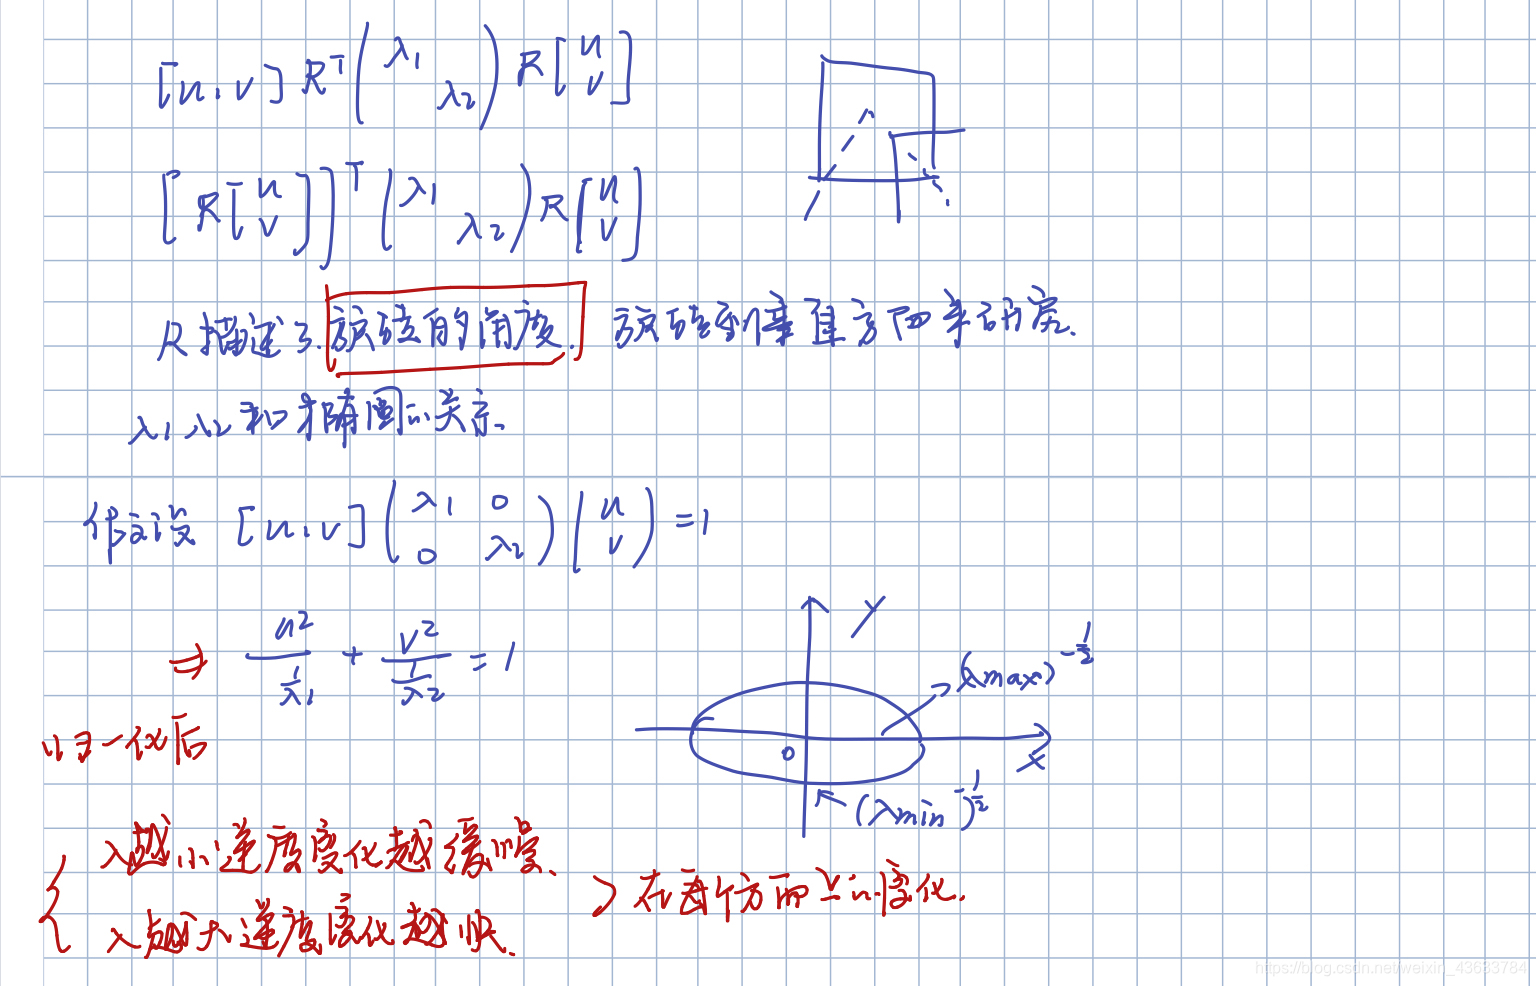 [u,v] R^T (λ1 λ2) R [u v]
[R[u v]]^T (λ1 λ2) R [u v]
R描述了旋转的角度. 旋转到垂直方向来研究.
λ1 λ2和椭圆的关系.
假设 [u,v] (λ1 0 0 λ2) (u v) = 1
⇒ u²/(1/λ1) + v²/(1/λ2) = 1
Y
(λmax)^-1/2
归一化后
0
X
(λmin)^-1/2
λ越小速度变化越缓慢.
λ越大速度变化越快.
在两个方向上的变化.
https://blog.csdn.net/weixin_43683784